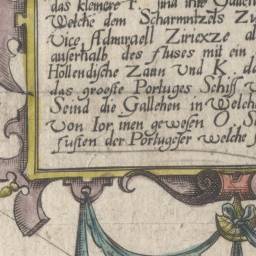 das kleinere F. sind ihre Gallen
Welcke dem Scharmutzels Zu
Vice Admiraell Ziriexze al
auserhalb des fluses mit ein
Hollendische Zaun Und K da
das grooste Portuges Schiff
Seind die Gallehen in Welche
Von Ior, inen gewesen O. S
fusten der Portugeser welche